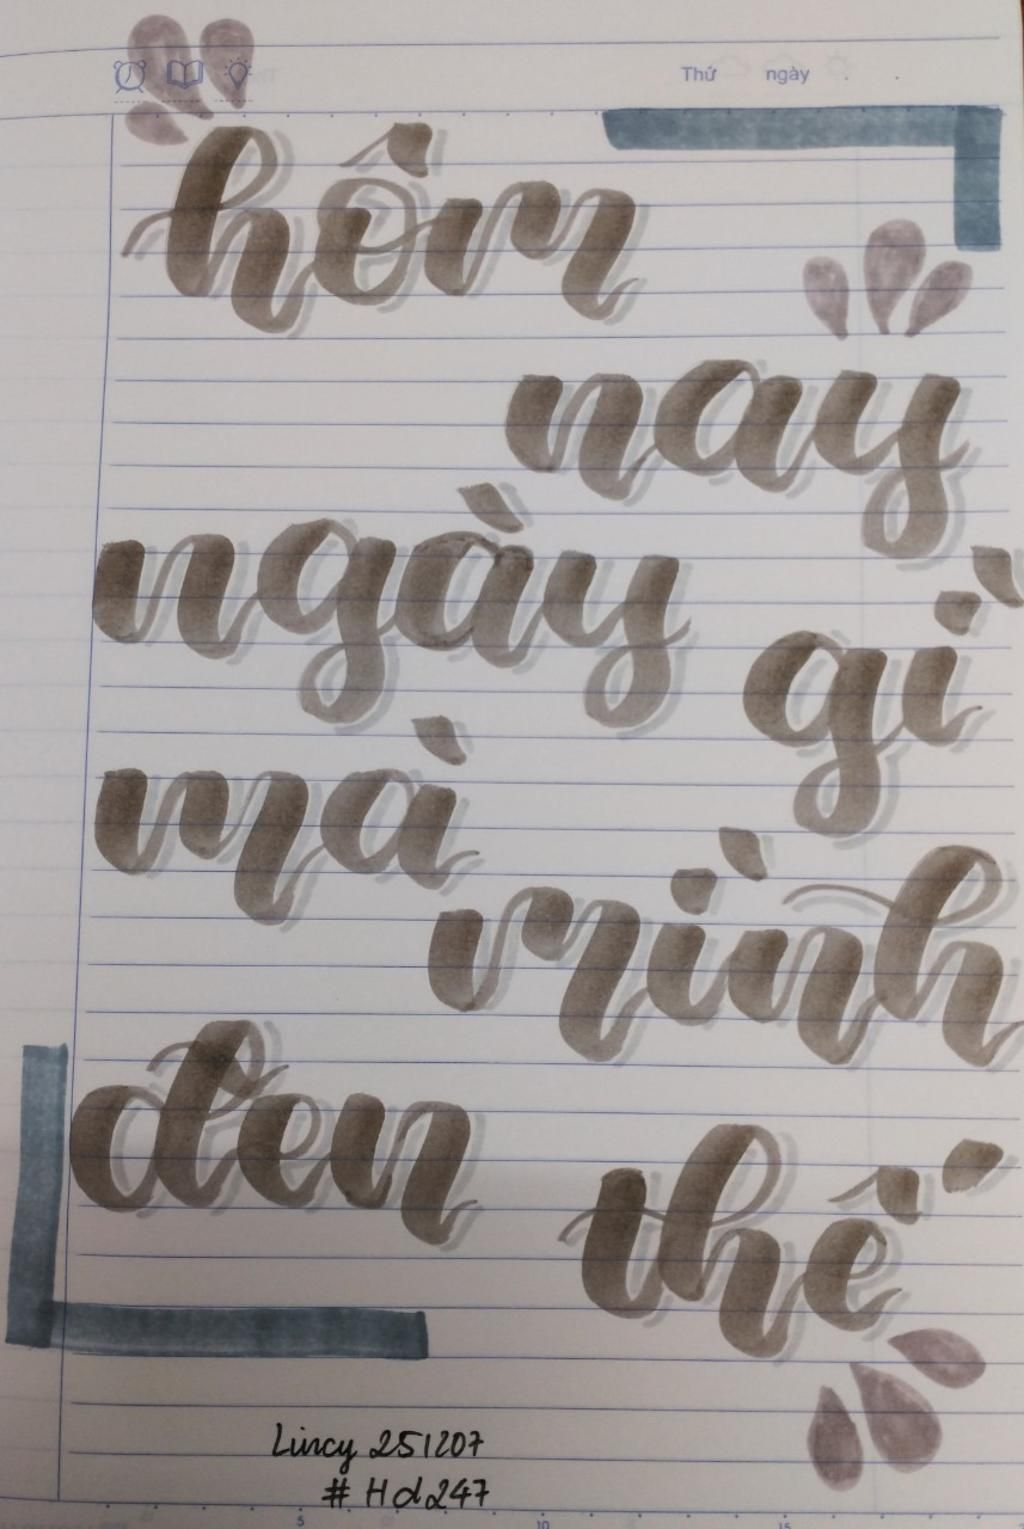 Thứ ngày . .
hôm
nay
ngày gì
mà
mình
đen thế
Lincy 251207
# Hd247
5 10 15